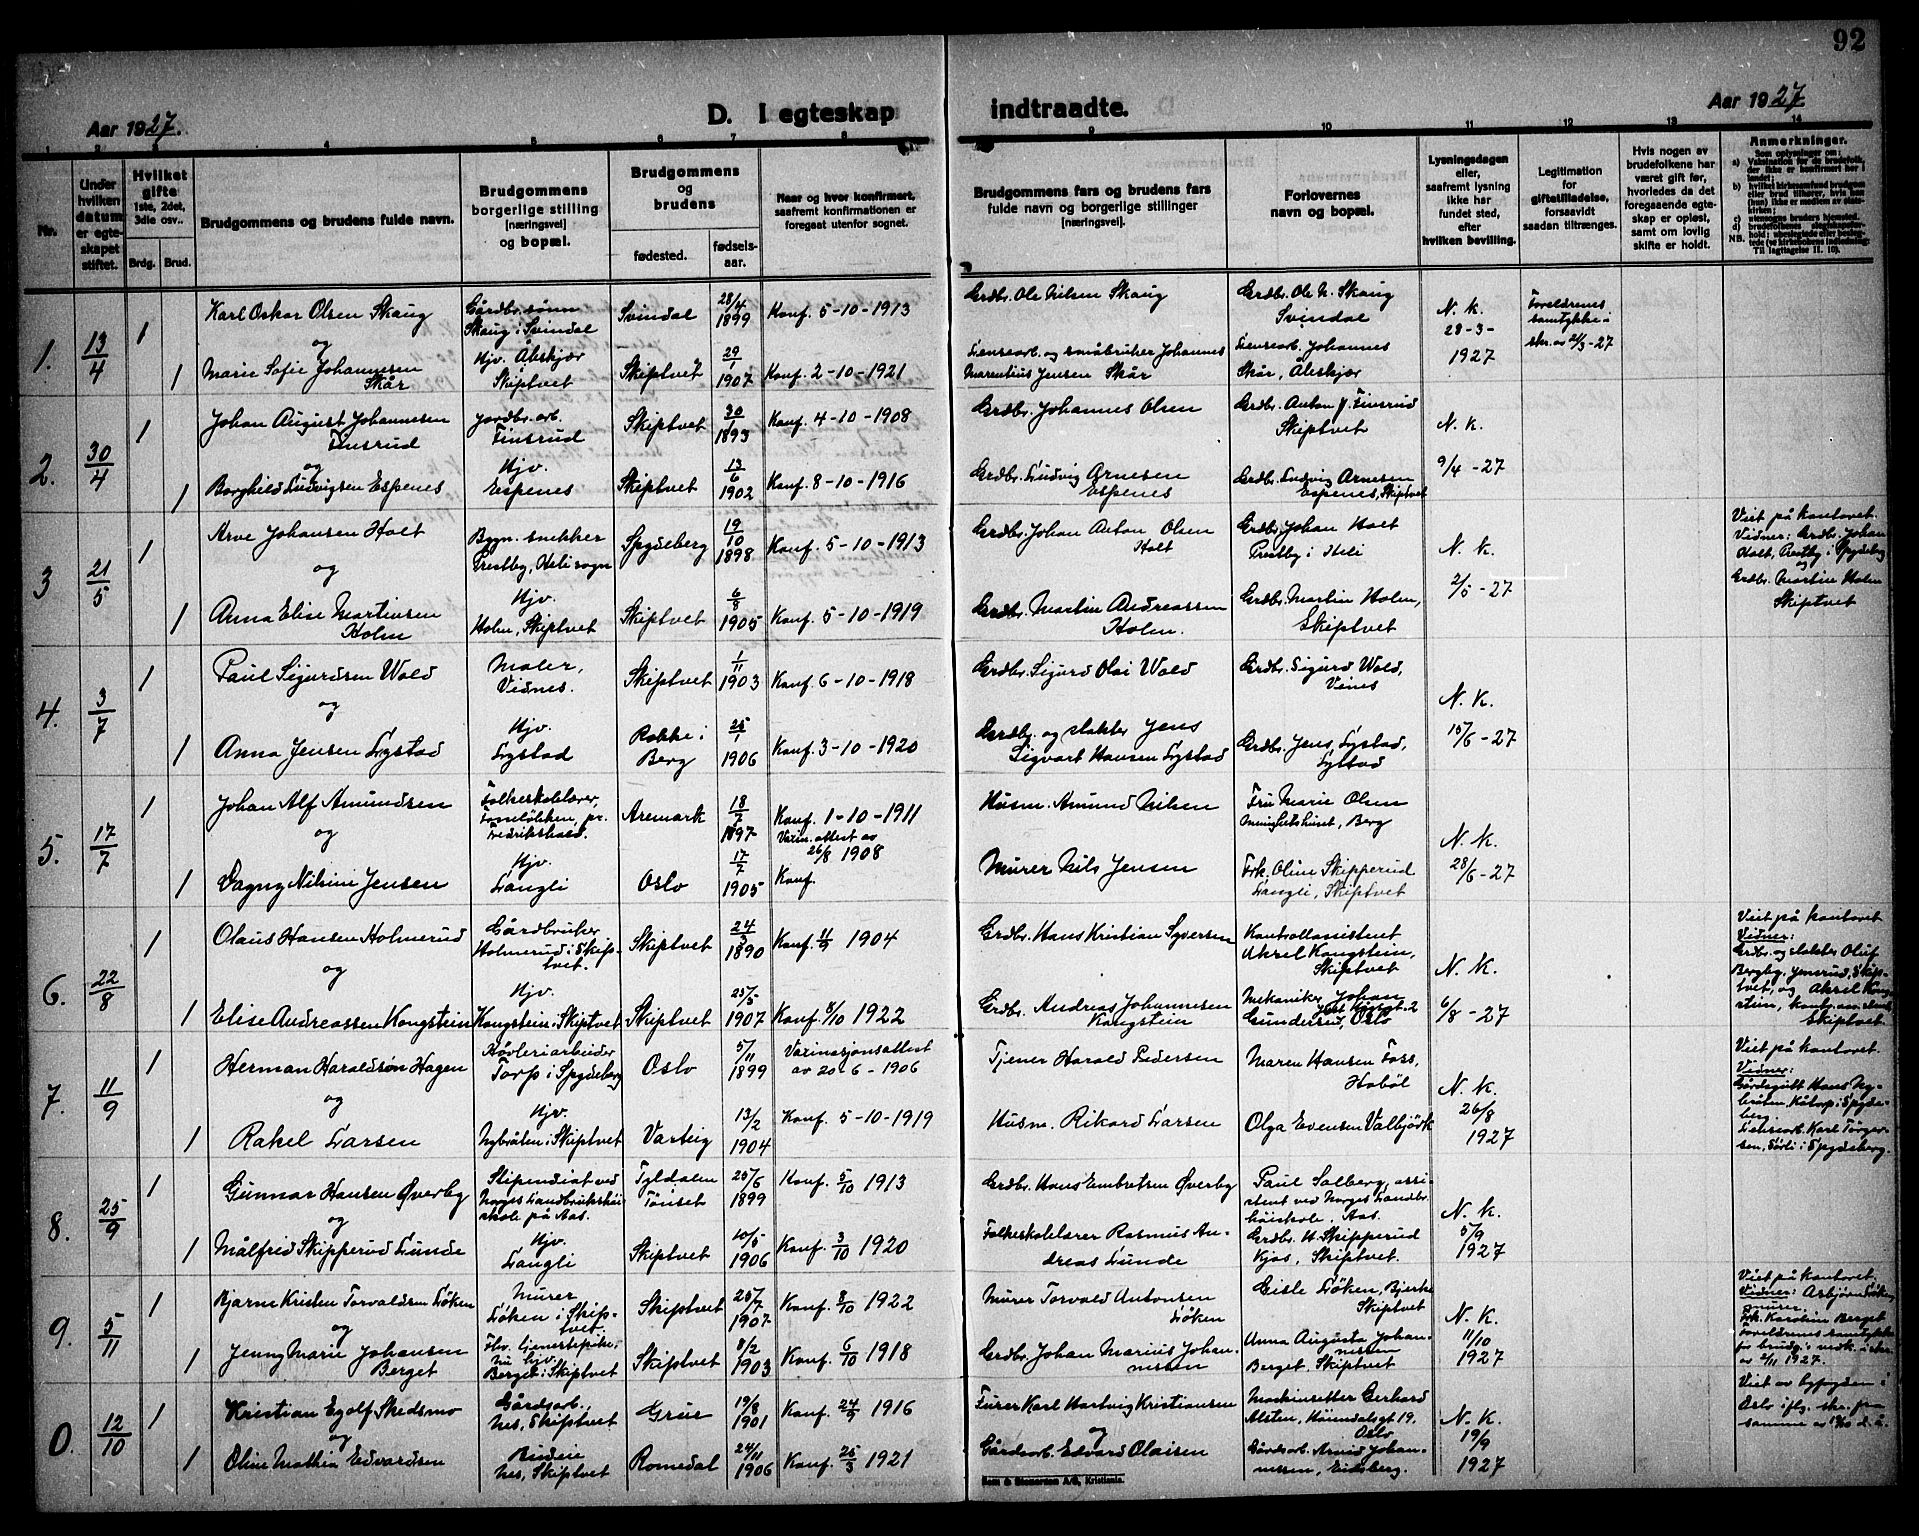 92
Aar 1927.
D. I egteskap indtraadte.
Aar 1927
1 2 3 4 5 6 7 8 9 10 11 12 13 14
Nr.
Under hvilken datum er egteskapet stiftet.
Hvilket gifte 1ste, 2det, 3die osv.
Brdg. Brud.
Brudgommens og brudens fulde navn.
Brudgommens borgerlige stilling [næringsvei] og bopæl.
Brudgommens og brudens
fødested.
fødselsaar.
Naar og hvor konfirmert, saafremt konfirmationen er foregaat utenfor sognet.
Brudgommens fars og brudens fars fulde navn og borgerlige stillinger [næringsvei].
Forlovernes navn og bopæl.
Lysningsdagen eller, saafremt lysning ikke har fundet sted, efter hvilken bevilling.
Legitimation for giftetilladelse, forsaavidt saadan tiltrænges.
Hvis nogen av brudefolkene har været gift før, hvorledes da det foregaaende egteskap er opløst, samt om lovlig skifte er holdt.
Anmerkninger.
1. 13/4
1 Karl Oskar Olsen Skaug
Gårdbr.sønn Skaug i Svindal
Svindal 28/4 1899 Konf. 5-10-1913
Grdbr. Ole Nilsen Skaug
Grdbr. Ole N. Skaug Svindal
N. K. 28-3-1927
Foreldrenes samtykke i skr. av 2/3-27
og
1 Marie Sofie Johannesen Skår
Hjv. Åleskjær Skiptvet
Skiptvet 29/1 1907 Konf. 2-10-1921
Linearb. og småbruker Johannes Marentius Jensen Skår
Linearb. Johannes Skår, Åleskjær
2. 30/4
1 Johan August Johannesen Finsrud
Jordbr.arb. Finsrud
Skiptvet 30/1 1893 Konf. 4-10-1908
Grdbr. Johannes Olsen
Grdbr. Anton J. Finsrud Skiptvet
N. K. 9/4-27
og
1 Borghild Ludvigsen Espenes
Hjv. Espenes
Skiptvet 13/6 1902 Konf. 8-10-1916
Grdbr. Ludvig Arnesen Espenes
Grdbr. Ludvig Arnesen Espenes, Skiptvet
3 21/5
1 Arve Johansen Holt
Bygn. snekker Prestby, Heli sogn
Spydeberg 19/10 1898 Konf. 5-10-1913
Grdbr. Johan Anton Olsen Holt
Grdbr. Johan Holt Prestby i Heli
N. K. 2/5-27
Viet på kontoret. Vidner: Grdbr. Johan Holt, Prestby i Spydeberg og Grdbr. Martin Holm Skiptvet
og
1 Anna Elise Martinsen Holm
Hjv. Holm, Skiptvet
Skiptvet 6/8 1905 Konf. 5-10-1919
Grdbr. Martin Andreassen Holm.
Grdbr. Martin Holm, Skiptvet
4. 3/7
1 Paul Sigurdsen Wold
Maler, Vidnes.
Skiptvet 1/11 1903 Konf. 6-10-1918
Grdbr. Sigurd Olai Wold
Grdbr. Sigurd Wold, Vines
N. K. 15/6-27
og
1 Anna Jensen Lystad
Hjv. Lystad
Rokke i Berg 25/1 1906 Konf. 3-10-1920
Grdbr. og slakter Jens Sigvart Hansen Lystad
Grdbr. Jens Lystad, Lystad
5. 17/7
1 Johan Alf Amundsen
Folkeskolelærer, Torsløkken, pr. Fredrikshald.
Aremark 18/7 1897 Konf. 1-10-1911
Vaxin.attest av 26/8 1908
Husm. Amund Nilsen
Fru Marie Olsen Menighetshuset, Berg
N. K. 28/6-27
og
1 Dagny Nilsine Jensen
Hjv. Langli
Oslo 17/7 1905 Konf.
Murer Nils Jensen
Frk. Oline Skipperud Langli, Skiptvet
6. 22/8
1 Olaus Hansen Holmerud
Gårdbruker Holmerud i Skiptvet.
Skiptvet 24/3 1890 Konf. 11/9 1904
Grdbr. Hans Kristian Syversen
Kontrollassistent Aksel Kongstein, Skiptvet
N. K. 6/8-27
Viet på kontoret Vidner: Grdbr. og slakter Oluf Bergby, Jensrud, Skiptvet, og Aksel Kongstein, kontr.assistent, Skiptvet.
og
1 Elise Andreassen Kongstein
Hjv. Kongstein i Skiptvet
Skiptvet 25/5 1907 Konf. 8/10 1922
Grdbr. Andreas Johannesen Kongstein
Mekaniker Johan Gundersrud, Oslo
7. 11/9
1 Herman Haraldsøn Hagen
Høvleriarbeider Torp i Spydeberg
Oslo 5/11 1899 Vaxinasjonsattest av 20-6-1906
Tjener Harald Pedersen
Maren Hansen Foss, Hobøl
N. K. 26/8 1927
Viet på kontoret. Vidner: Gårdsgutt Hans Nybråten, Kåtorp i Spydeberg. Lineearb. Karl Torgersen, Sørli i Spydeberg.
og
1 Rakel Larsen
Hjv. Nybråten i Skiptvet
Varteig 13/2 1904 Konf. 5-10-1919
Husm. Rikard Larsen
Olga Evensen Valbjörk
8. 25/9
1 Gunnar Hansen Øverby
Stipendiat ved Norges Landbrukshøiskole på Aas.
Tyldalen Tönset 25/6 1899 Konf. 5/10 1913
Grdbr. Hans Embretsen Øverby
Paul Solberg, assistent ved Norges Landbr.høiskole, Aas.
N. K. 5/9 1927
og
1 Målfrid Skipperud Lunde
Hjv. Langli
Skiptvet 10/5 1906 Konf. 3/10 1920
Folkeskolelærer Rasmus Andreas Lunde
Grdbr. H. Skipperud Kjos, Skiptvet.
9. 5/11
1 Bjarne Kristen Torvaldsen Löken
Murer Löken i Skiptvet.
Skiptvet 25/7 1907 Konf. 8/10 1922
Murer Torvald Antonsen Löken
Gisle Löken, Bjerke Skiptvet
N. K. 11/10 1927
Viet på kontoret. Vidner: Asbjørn Löken, murer. Frk. Karoline Berget Foreldrenes samtykke for brudg. medk. i skr. av 2/11 1927.
og
1 Jenny Marie Johansen Berget
Fhv. tjenestepike, nu hjv. Berget i Skiptvet
Skiptvet 8/2 1903 Konf. 6/10 1918
Grdbr. Johan Marius Johannessen
Anna Augusta Johannessen Berget, Skiptvet
0. 12/10
1 Kristian Egolf Skedsmo
Gårdsarb. Nes, Skiptvet
Grue 19/8 1901 Konf. 24/9 1916
Furer Karl Hartvig Kristiansen
Maskinsetter Gerhard Alsten, Heimdalsgt 19, Oslo
N. K. 19/9 1927
Viet av byfogden i Oslo iflg. skr. fra samme av 12/10 d. å.
og
1 Oline Mathea Edvardsen
Budeie Nes, Skiptvet
Romedal 24/11 1906 Konf. 25/3 1921
og
Gårdsarb. Edvard Olaisen
Gårdsarb. Arvid Johannessen, Eidsberg.